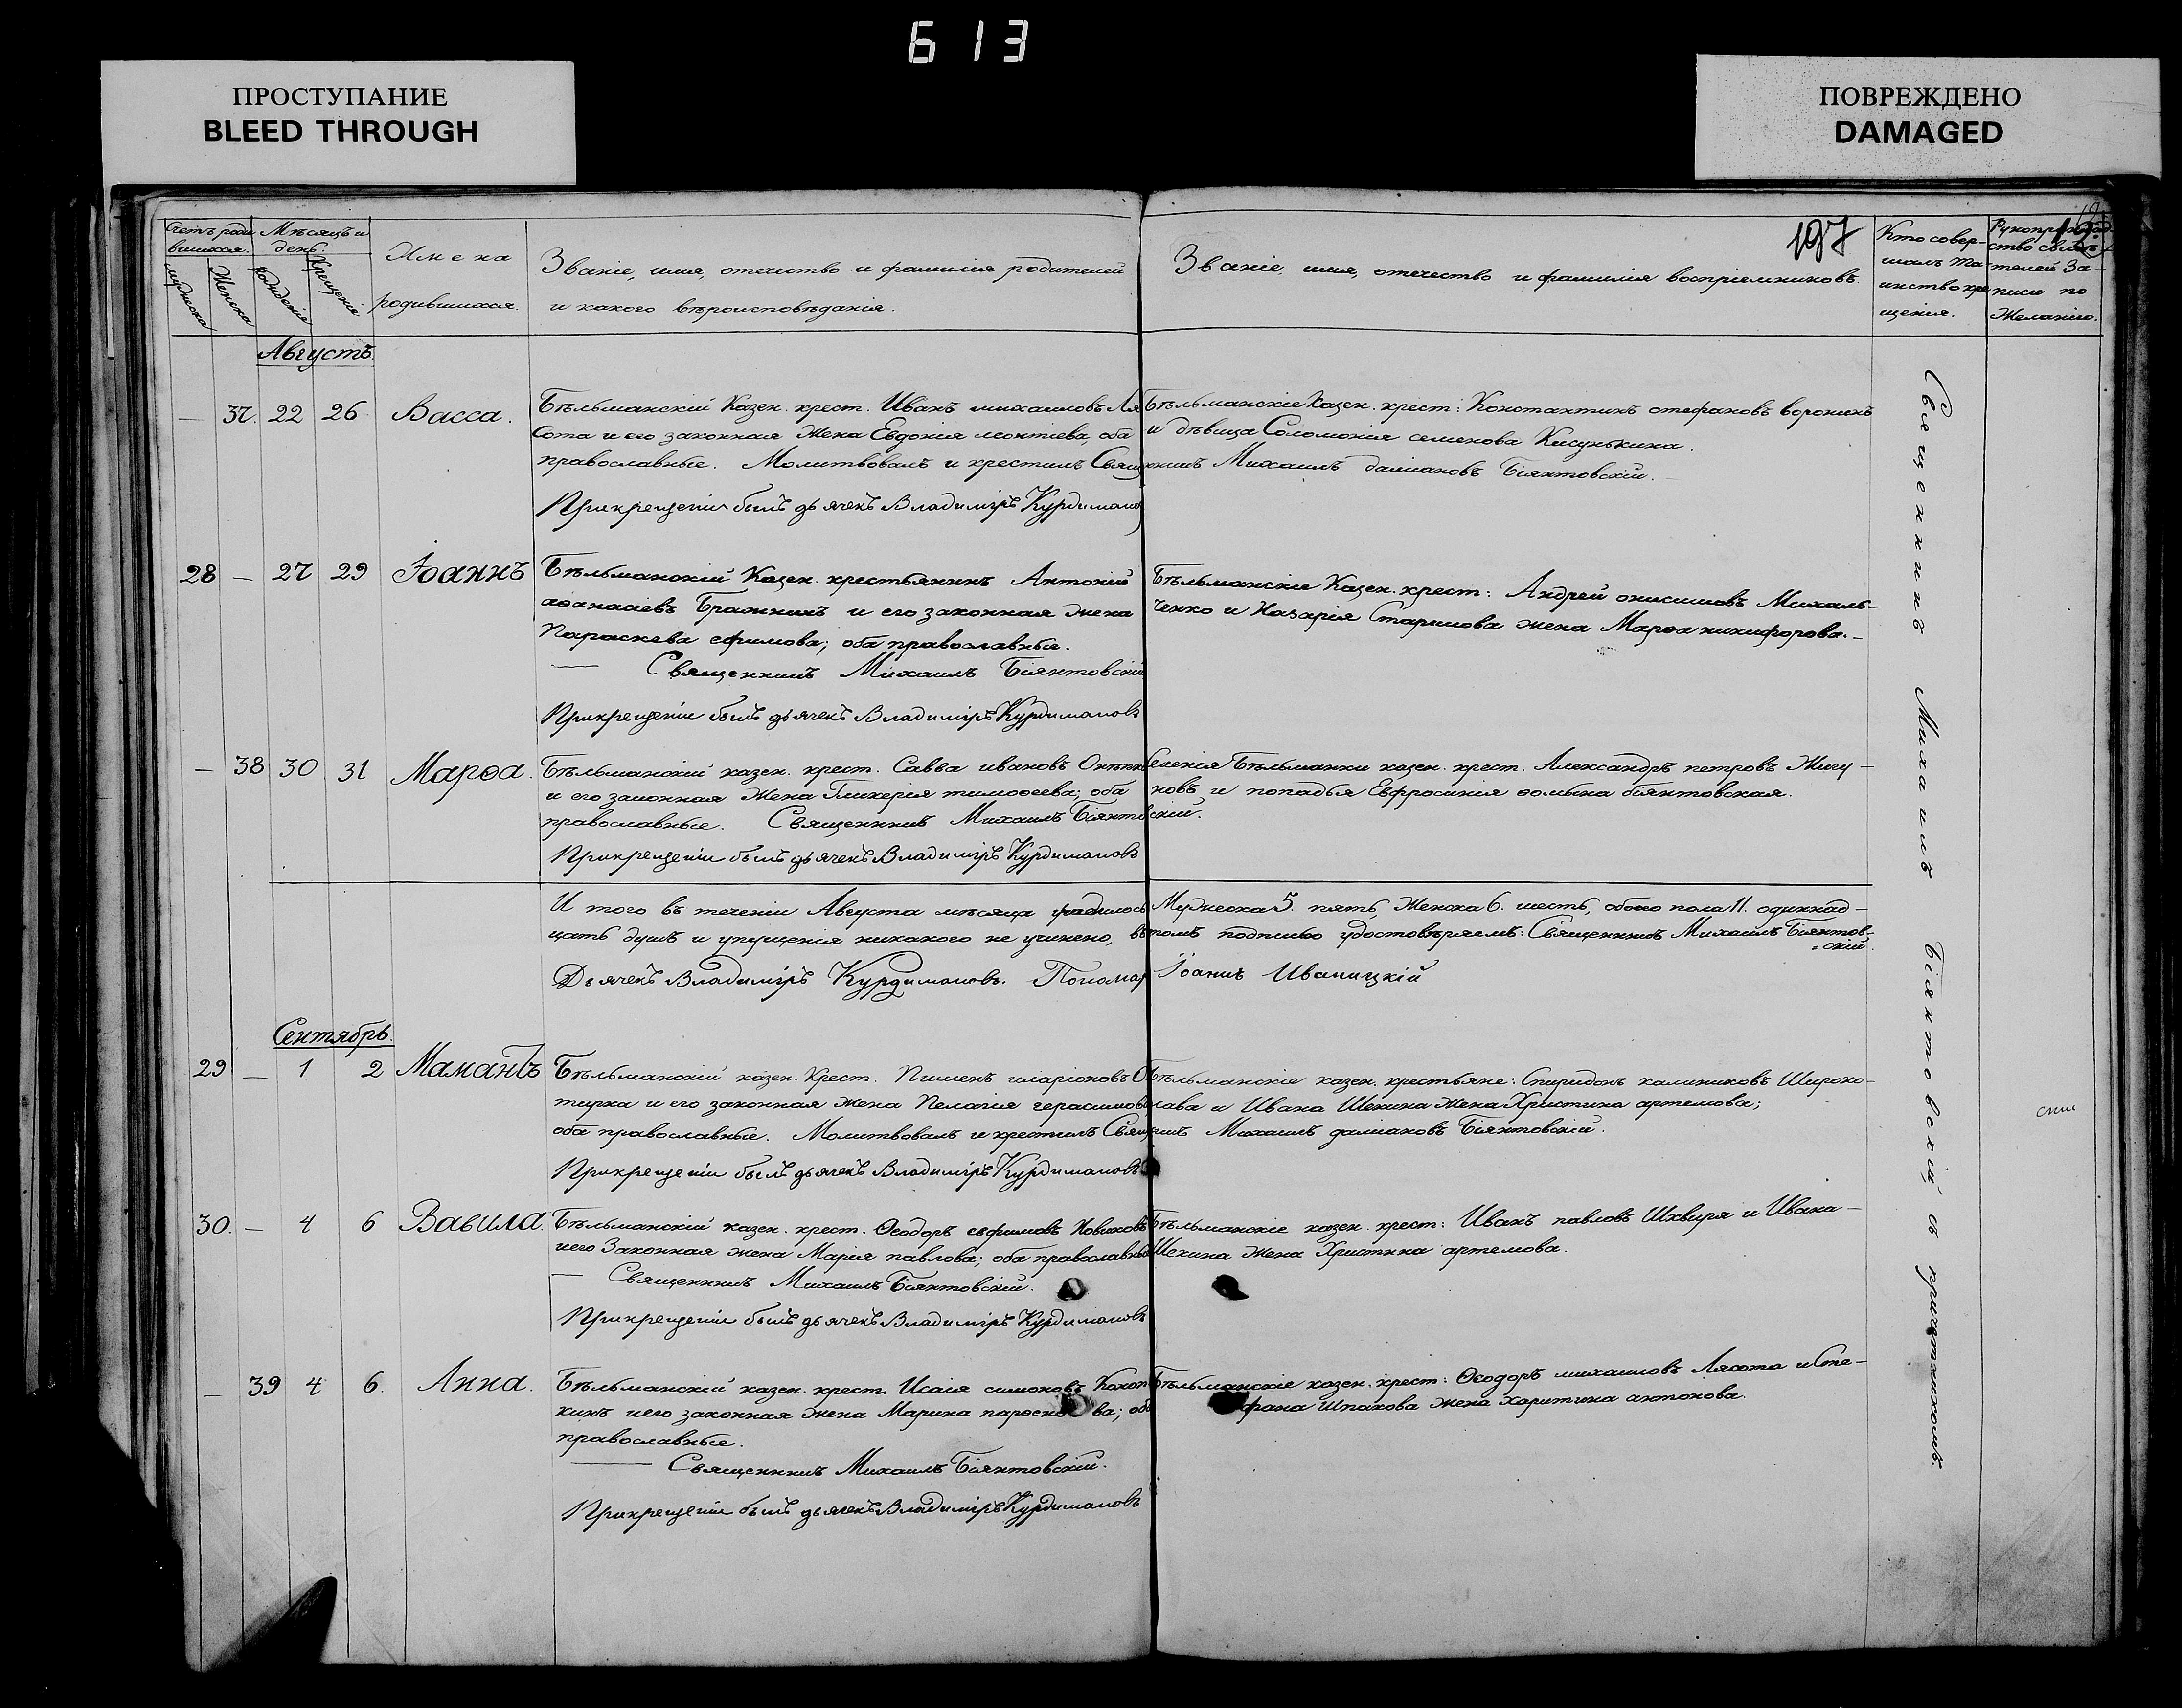 613
ПРОСТУПАНИЕ
BLEED THROUGH
ПОВРЕЖДЕНО
DAMAGED
197
Счетъ роди
вшихся.
мужеска
Женска
Мѣсяцъ и
день.
рожденія
Крещенія
Имена
родившихся.
Званіе, имя, отечество и фамилія родителей
и какого вѣроисповѣданія.
Званіе, имя, отечество и фамилія воспріемниковъ.
Кто совер-
шалъ та-
инство кре
щенія.
ство свидѣ
телей За-
писи по
Желанію.
Августъ.
— 37. 22 26 Васса.
Бѣльманскій Казен. крест. Иванъ михаиловъ Ля
сота и его законная Жена Евдокія леонтіева, оба
православные. Молитвовалъ и крестилъ Свящ
Прикрещеніи былъ дьячекъ Владиміръ Курдиманов
Бѣльманскіе Казен. крест: Константинъ стефановъ воронинъ
и дѣвица Соломонія семенова Кисунькина.
нникъ Михаилъ даміановъ Біянтовскій.
28 — 27 29 Іоаннъ
Бѣльманскій Казен. крестьянинъ Антоній
аѳанасіевъ Бражникъ и его законная жена
Параскева ефимова; оба православные.
— Священникъ Михаилъ Біянтовскій
Прикрещеніи былъ дьячекъ Владиміръ Курдимановъ
Бѣльманскіе Казен. крест: Андрей онисимовъ Михаль-
ченко и Назарія Старикова жена Марѳа никифорова.-
— 38 30 31 Марѳа.
Бѣльманскій казен. крест. Савва ивановъ
и его законная Жена Гликерія тимоѳеева; оба
православные. Священникъ Михаилъ Біянто
Прикрещеніи былъ дьячекъ Владиміръ Курдимановъ
Селенія Бѣльманки казен. крест. Александръ петровъ Жигу-
новъ и попадья Евфросинія ѳомина біянтовская.
вскій.
И того въ теченіи Августа мѣсяца родилось
цать душъ и упущенія никакого не учинено, въ
Дьячекъ Владиміръ Курдимановъ. Пономар
Мужеска 5. пять, Женска 6. шесть, обоего пола 11. одиннад-
томъ подписью удостовѣряемъ: Священникъ Михаилъ Біянтов-
скій.
Іоаннъ Иваницкій
Сентябрь.
29 — 1 2 Мамантъ
Бѣльманскій казен. Крест. Пименъ иларіоновъ О
тирка и его законная Жена Пелагія герасимова
оба православные. Молитвовалъ и крестилъ Свящ
Прикрещеніи былъ дьячекъ Владиміръ Курдимановъ
Бѣльманскіе казен. крестьяне: Спиридонъ калиниковъ Широко-
лава и Ивана Шекина Жена Христина артемова;
нникъ Михаилъ даміановъ Біянтовскій.
30. — 4 6 Вавила.
Бѣльманскій казен. крест. Ѳеодоръ евфимовъ Новиковъ
и его Законная жена Марія павлова; оба православные
— Священникъ Михаилъ Біянтовскій.
Прикрещеніи былъ дьячекъ Владиміръ Курдимановъ
Бѣльманскіе казен. крест: Иванъ павловъ Шквиря и Ивана-
Шекина жена Христина артемова.
— 39 4 6. Анна.
Бѣльманскій казен. крест. Исаія симоновъ Конон
кинъ и его законная жена Марина ва; оба
православные.
— Священникъ Михаилъ Біянтовскій.
Прикрещеніи былъ дьячекъ Владиміръ Курдимановъ
Бѣльманскіе казен. крест: Ѳеодоръ михаиловъ Лясота и Сте-
фана Шпакова жена Харитина антонова.
Священникъ Михаилъ Біянтовскій съ причетникомъ.